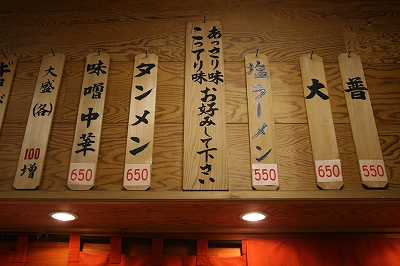 普
550
大
650
塩ラーメン
550
あっさり味
こってり味
お好みして下さい
タンメン
650
味噌中華
650
大盛(各)
100
増